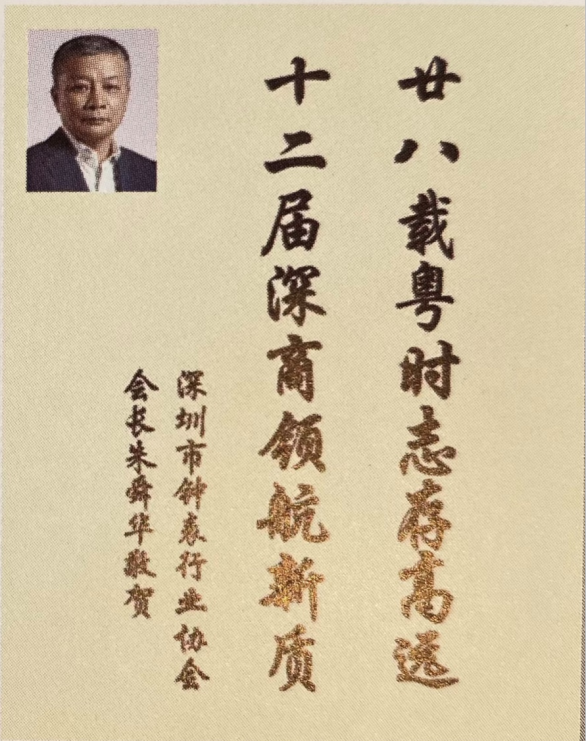 廿八载粤时志存高远
十二届深商领航新质
深圳市钟表行业协会
会长朱舜华敬贺